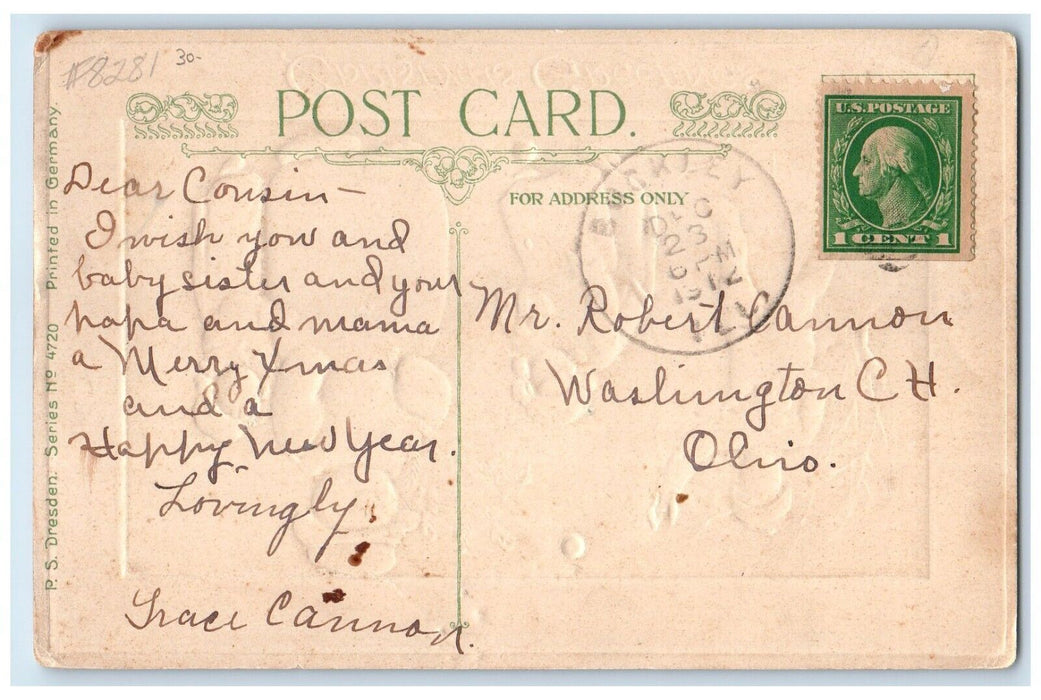 #8281 30-
POST CARD.
FOR ADDRESS ONLY
U.S. POSTAGE
1 CENT 1
DEC
23
6 PM
1912
ILL
Dear Cousin —
I wish you and
baby sister and your
papa and mama
a Merry Xmas
and a
Happy New Year.
Lovingly
Grace Cannon.
Mr. Robert Cannon
Washington C H.
Ohio.
P. S. Dresden. Series No 4720 Printed in Germany.